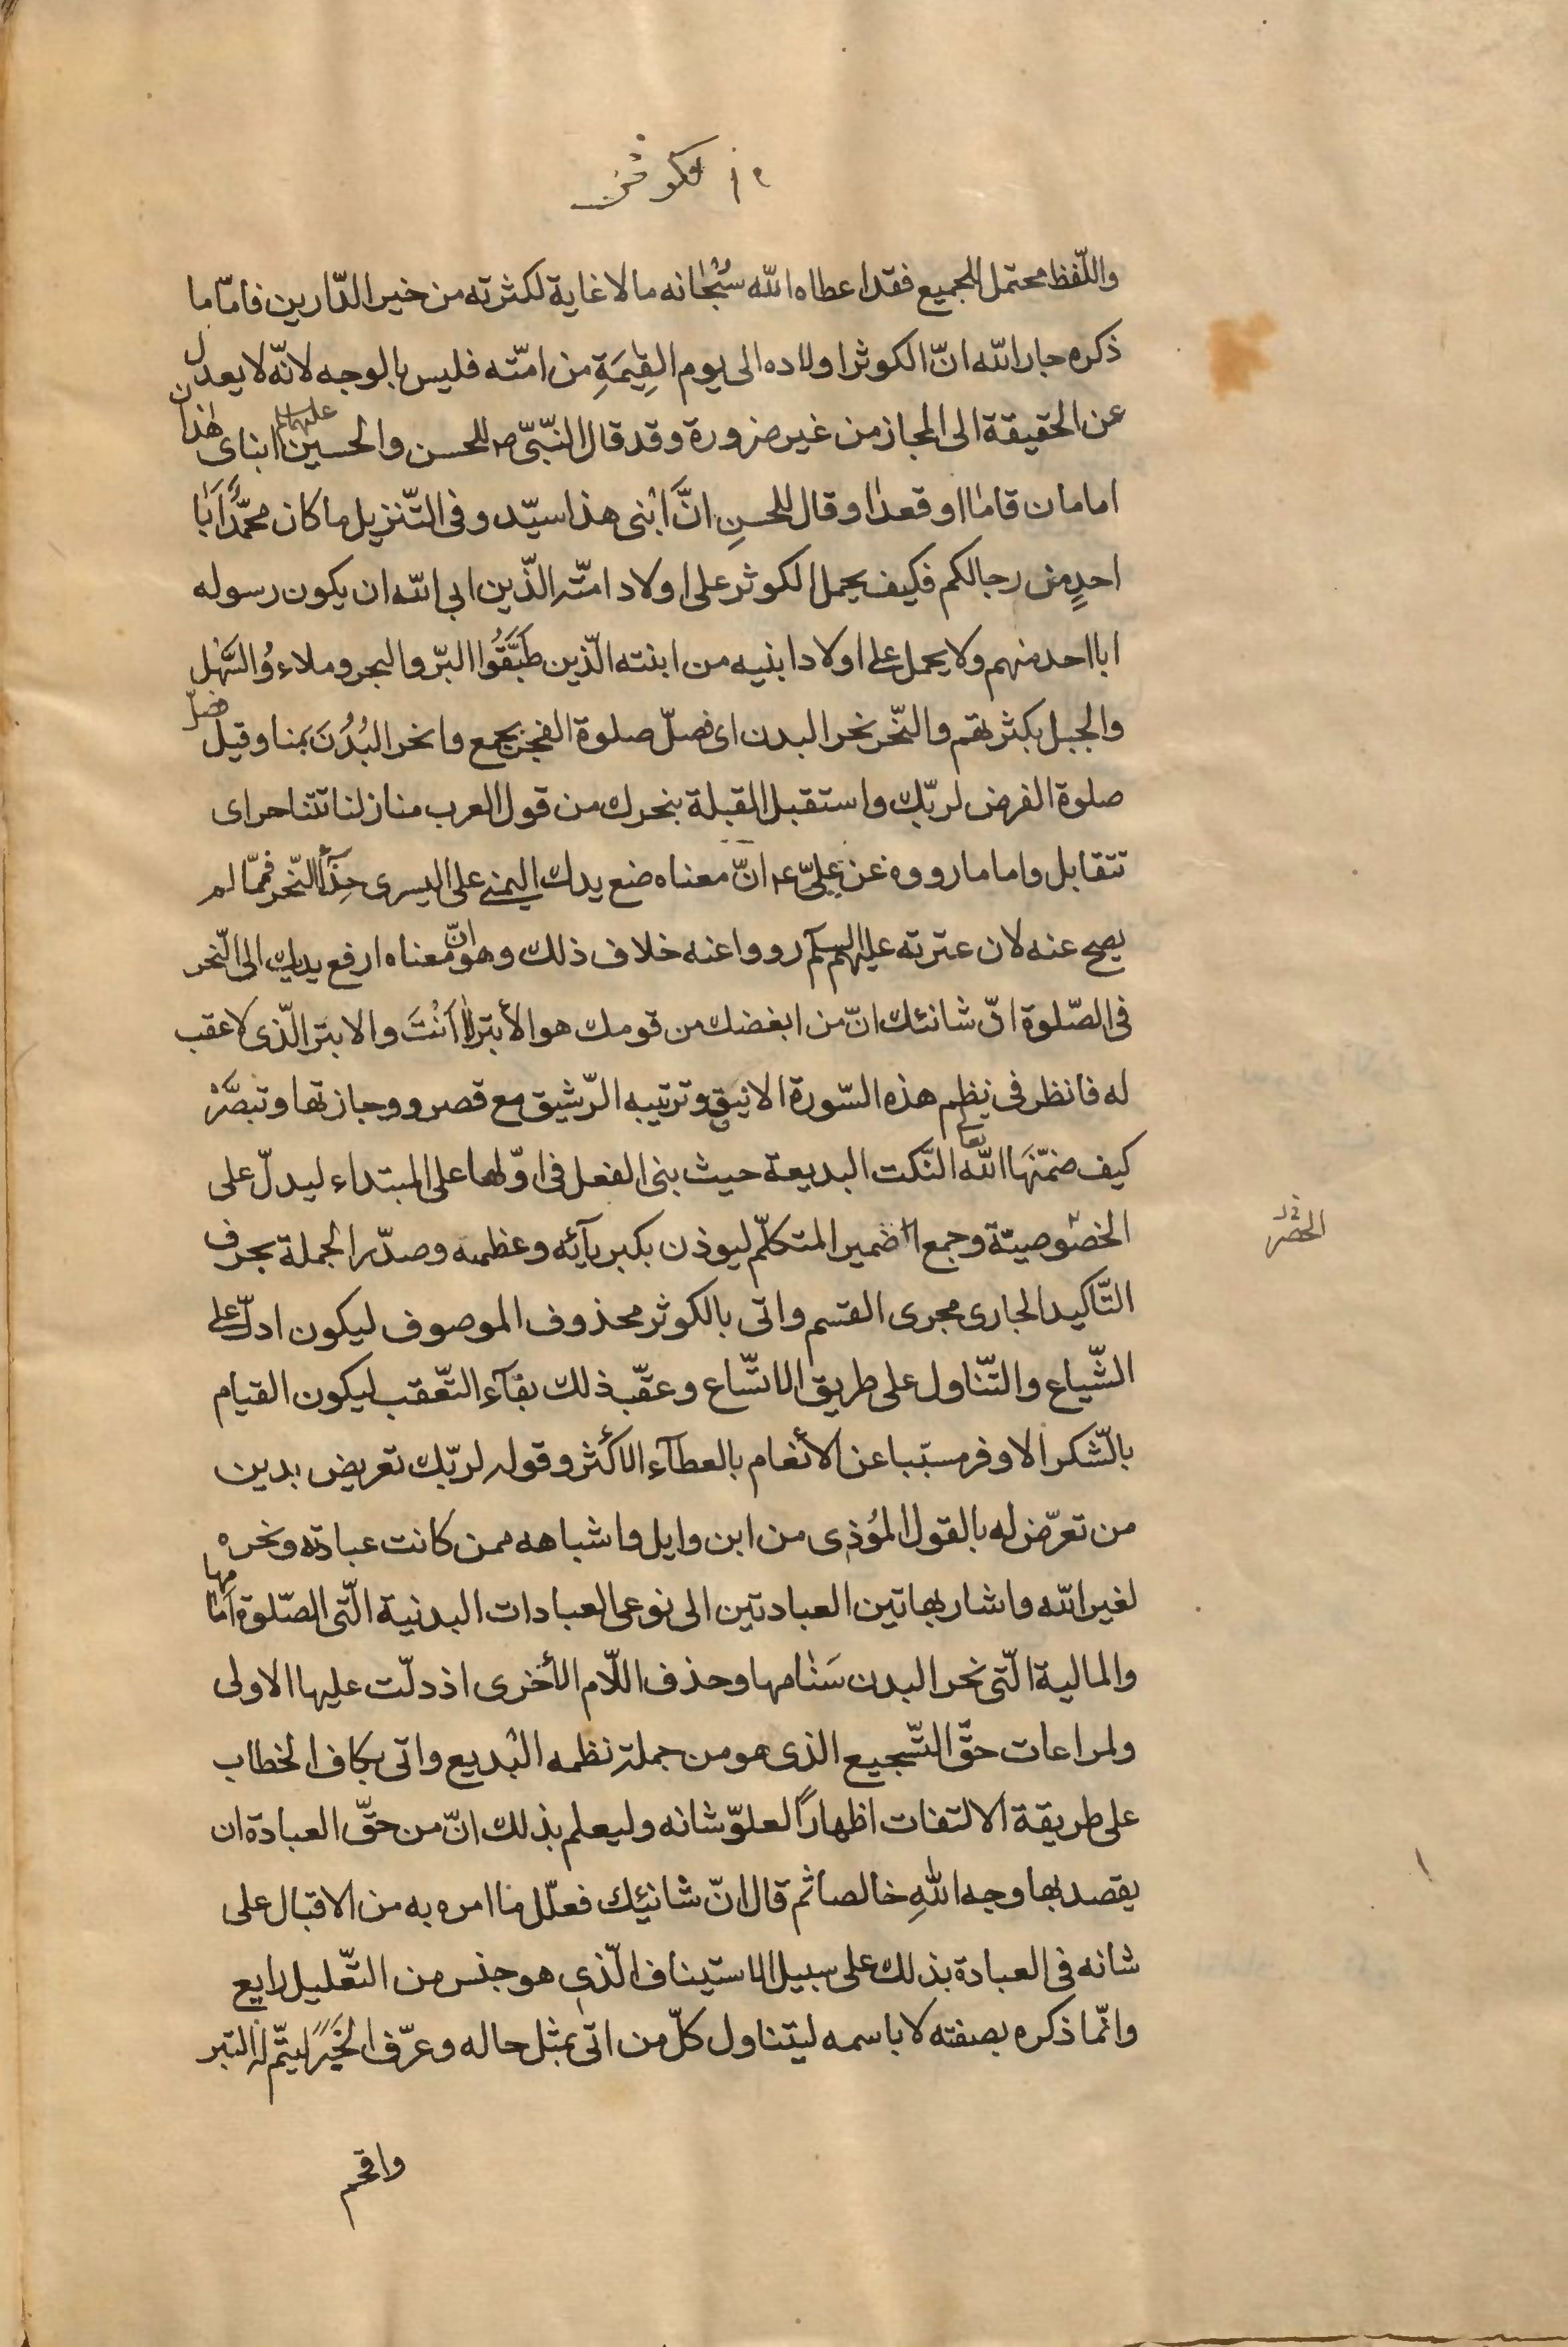 واللّفظ محتمل للجميع فقد اعطاه الله سُبْحٰانه ما لا غاية لكثرته من خير الدّارين فامّا ما
ذكره جار الله انّ الكوثر اولاده الى يوم القِيٰمَةِ من امّته فليس بالوجه لانّه لا يعدل
عن الحقيقة الى المجاز من غير ضرورة و قد قال النّبىّ ص للحسن والحسين عليهما السلم ابناى هٰذان
امامان قاما او قعدا و قال للحسنِ انَّ ابْنى هذا سيّد و فى التّنزيل ما كان محمّدٌ اَبٰا
احدٍ من رجالكم فكيف يحمل الكوثر على اولاد امّته الّذين ابى الله ان يكون رسوله
ابا احد منهم و لا يحمل على اولاد ابنيه من ابنته الّذين طَبَّقُوا البرّ والبحر و ملاءوُ السَّهْل
والجبل بكثرتهم والنّحر نحر البدن اى فصلّ صلوة الفجر بجمع وانحر البُدُنَ بمنا و قيل فصلّ
صلوة الفرض لربّك واستقبل القبلة بنحرك من قول العرب منازلنا تتناحر اى
تتقابل و اما ما رووه عن علىّ ع انّ معناه ضع يدك اليمنى على اليسرى حِذآءَ النّحر فممّا لم
يصح عنه لان عترته عليهم السلم رووا عنه خلاف ذلك و هو انّ معناه ارفع يديك الى النّحر
فى الصّلوة انّ شانئك انّ من ابغضك من قومك هو الأبتر لا اَنْتَ والابتر الّذى لا عقب
له فانظر فى نظم هذه السّورة الانيق و ترتيبه الرّشيق مع قصر و وجازتها و تبصَّرْ
كيف ضمّنَهَا الله تعا النّكت البديعة حيث بنى الفعل فى اوّلها على المبتداء ليدلّ على
الخصُوصيّة و جمع ضمير المتكلّم ليوذن بكبريآئه و عظمته و صدّر الجملة بحرف
الحصر
التّاكيد الجارى مجرى القسم و اتى بالكوثر محذوف الموصوف ليكون ادلّ على
الشّياع والتّناول على طريق الاتّساع و عقّب ذلك بفآء التّعقب ليكون القيام
بالّشكر الاوفر مسبّبا عن الأنعام بالعطآء الاكثر و قوله لربّك تعريض بدين
من تعرّض له بالقول المُوذى من ابن وايل و اشباهه ممن كانت عبادته و نحره
لغير الله و اشار بهاتين العبادتين الى نوعى العبادات البدنية الّتى الصّلوة امامها
والمالية الّتى نحر البدن سَنٰامها و حذف اللّام الأخرى اذ دلّت عليها الاولى
و لمراعات حقّ التّسجيع الذى هو من جملة نظمه البديع و اتى بكاف الخطاب
على طريقة الالتفات اظهارًا لعلوّ شانه و ليعلم بذلك انّ من حقّ العبادة ان
يقصد بها وجه اللهِ خالصا ثم قال انّ شانئِك فعلّل ما امره به من الاقبال على
شانه فى العبادة بذلك على سبيل الاستيناف الّذى هو جنس من التّعليل رايع
و انّما ذكره بصفته لا باسمه ليتناول كلّ من اتى بمثل حاله و عرّف الخَبَر ليتّم له التبر
واقحم